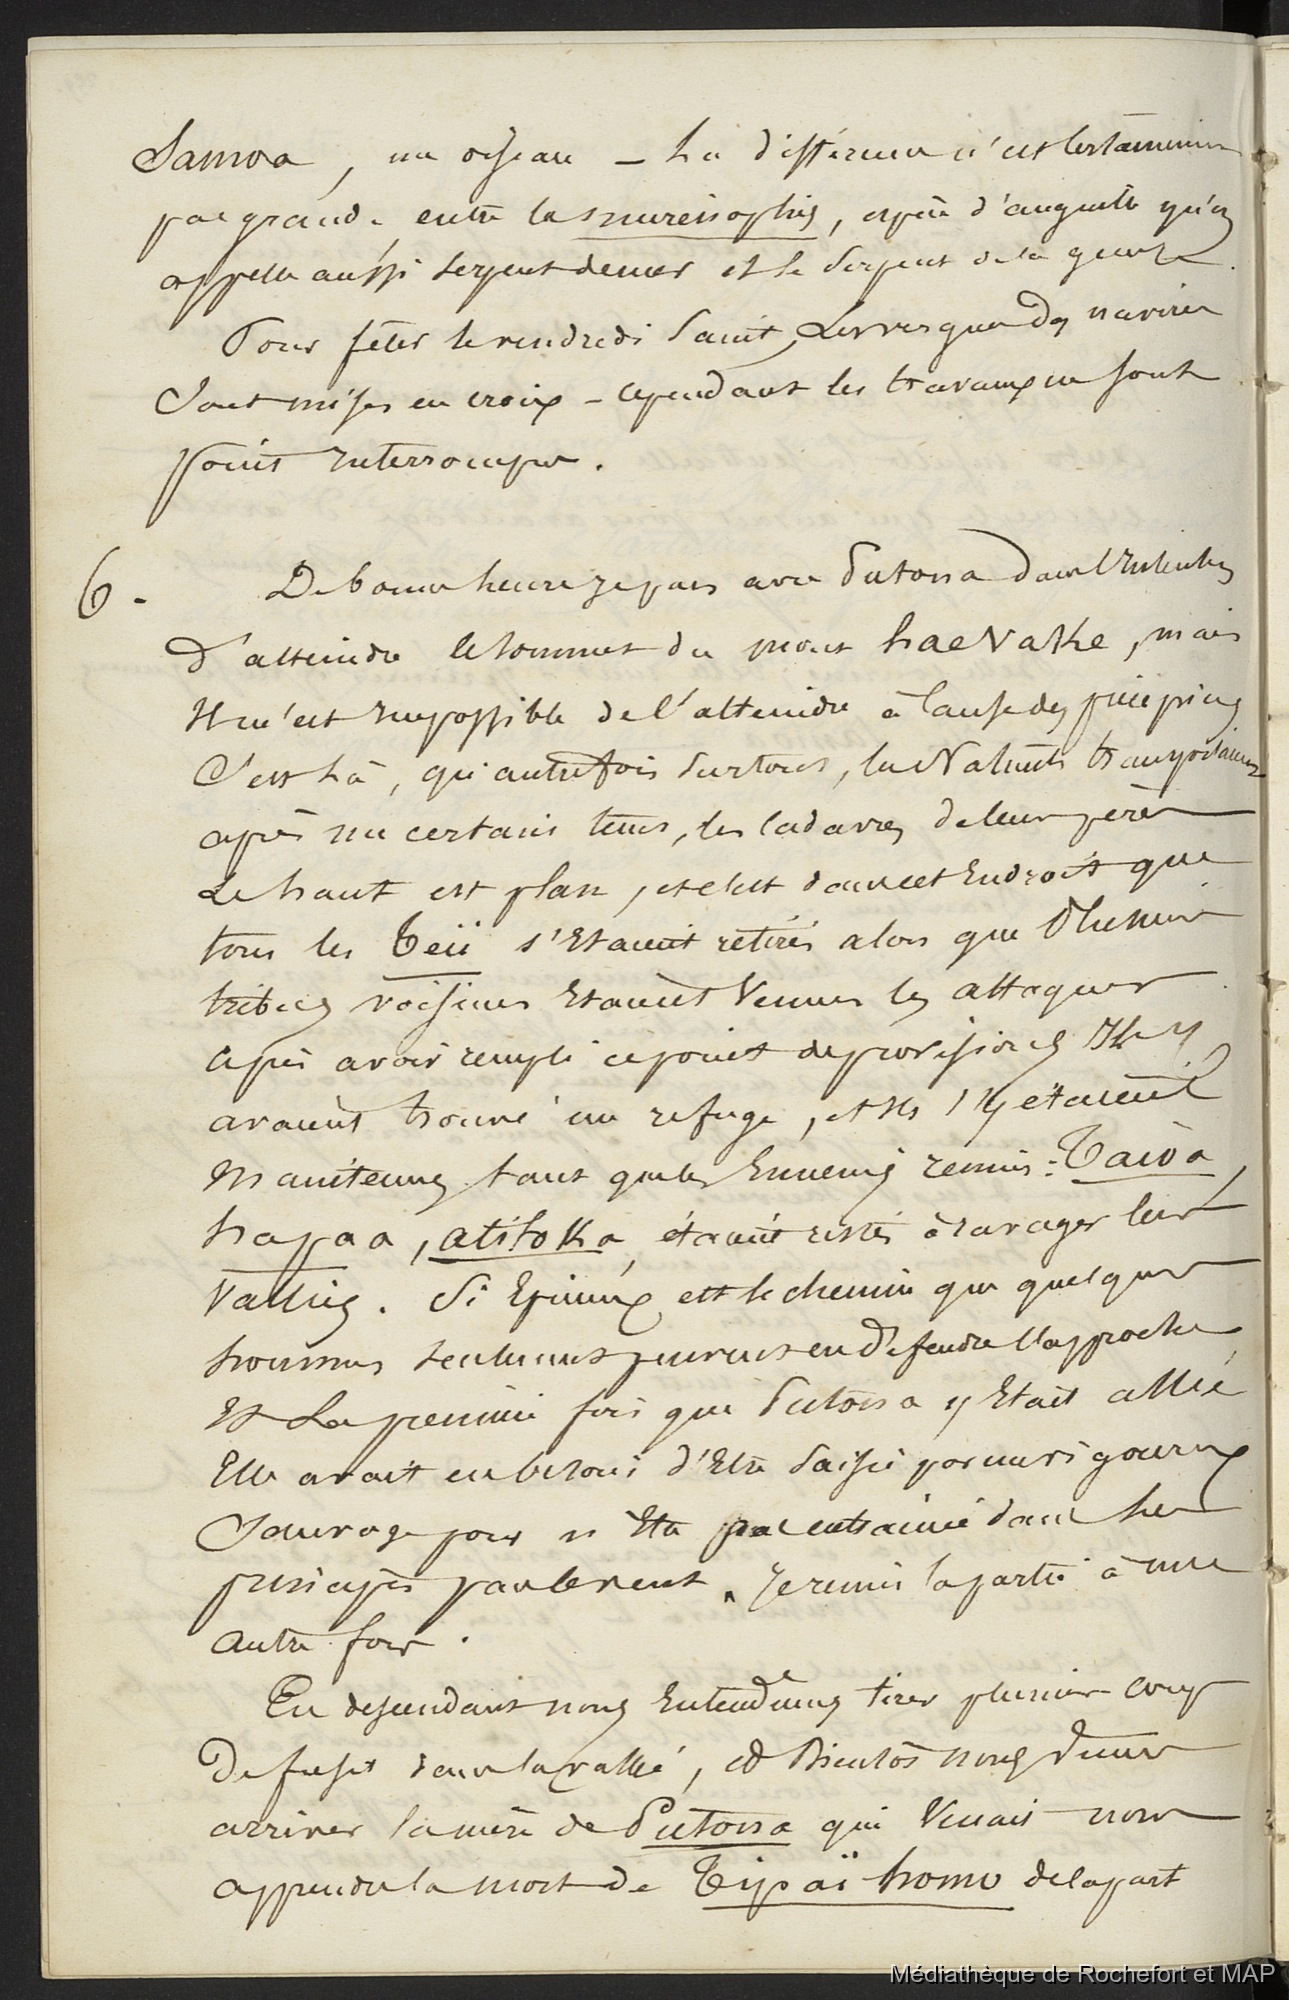 Samoa, un oiseau – La différence n'est certainement
pas grande entre la murénophis, espèce d'anguille qu'on
appelle aussi serpent de mer et le Serpent de la genèse.
Pour fêter le vendredi Saint, les vergues des navires
Sont mises en croix – cependant les travaux ne sont
point interrompus.
6. De bonne heure je pars avec Putona dans l'intention
d'atteindre le sommet du mont haevake, mais
Il m'est impossible de l'atteindre à cause des précipices
C'est là, qu'autrefois surtout, les Naturels transportaient
après un certain tems, les cadavres de leurs pères
Le haut est plan, et c'est dans cet Endroit que
tous les Teii s'Etaient retirés alors que Plusieurs
tribus voisines Etaient Venues les attaquer
après avoir rempli ce point de provisions Ils y
avaient trouvé un refuge, et ils s'y étaient
Maintenus tant que les Ennemis réunis: Taioa,
hapaa, atitoka, étaient restés à ravager leurs
Vallées. Si Epineux est le chemin que quelques
hommes seulement peuvent en défendre l'approche
Et La première fois que Putona y Etait allée
Elle avait eu besoin d'Etre saisie par un vigoureux
Sauvage pour n'Etre pas entrainée dans les
précipices par le vent. Je remis la partie à une
autre fois.
En descendant nous Entendîmes tirer plusieurs coups
De fusil dans la vallée, et Bientôt nous vîmes
arriver la mère de Putona qui Venait nous
apprendre la mort de Tipaï homo de la part
Médiathèque de Rochefort et MAP